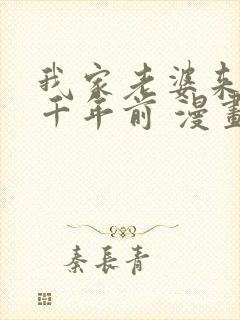 我家老婆来
千年前 漫畫
秦長青